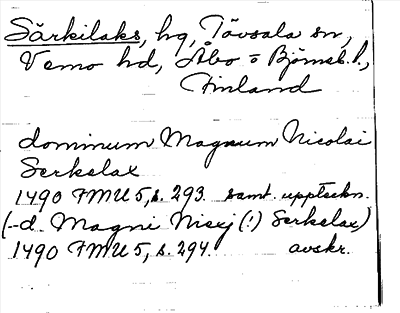 Särkilaks, hg, Tövsala sn,
Vemo hd, Åbo o Björneb. l.,
Finland
dominum Magnum Nicolai
Serkelax
1490 FMU 5, s. 293. samt. uppteckn.
(--d. Magni Nisej (!) Serkelax)
1490 FMU 5, s. 294. avskr.